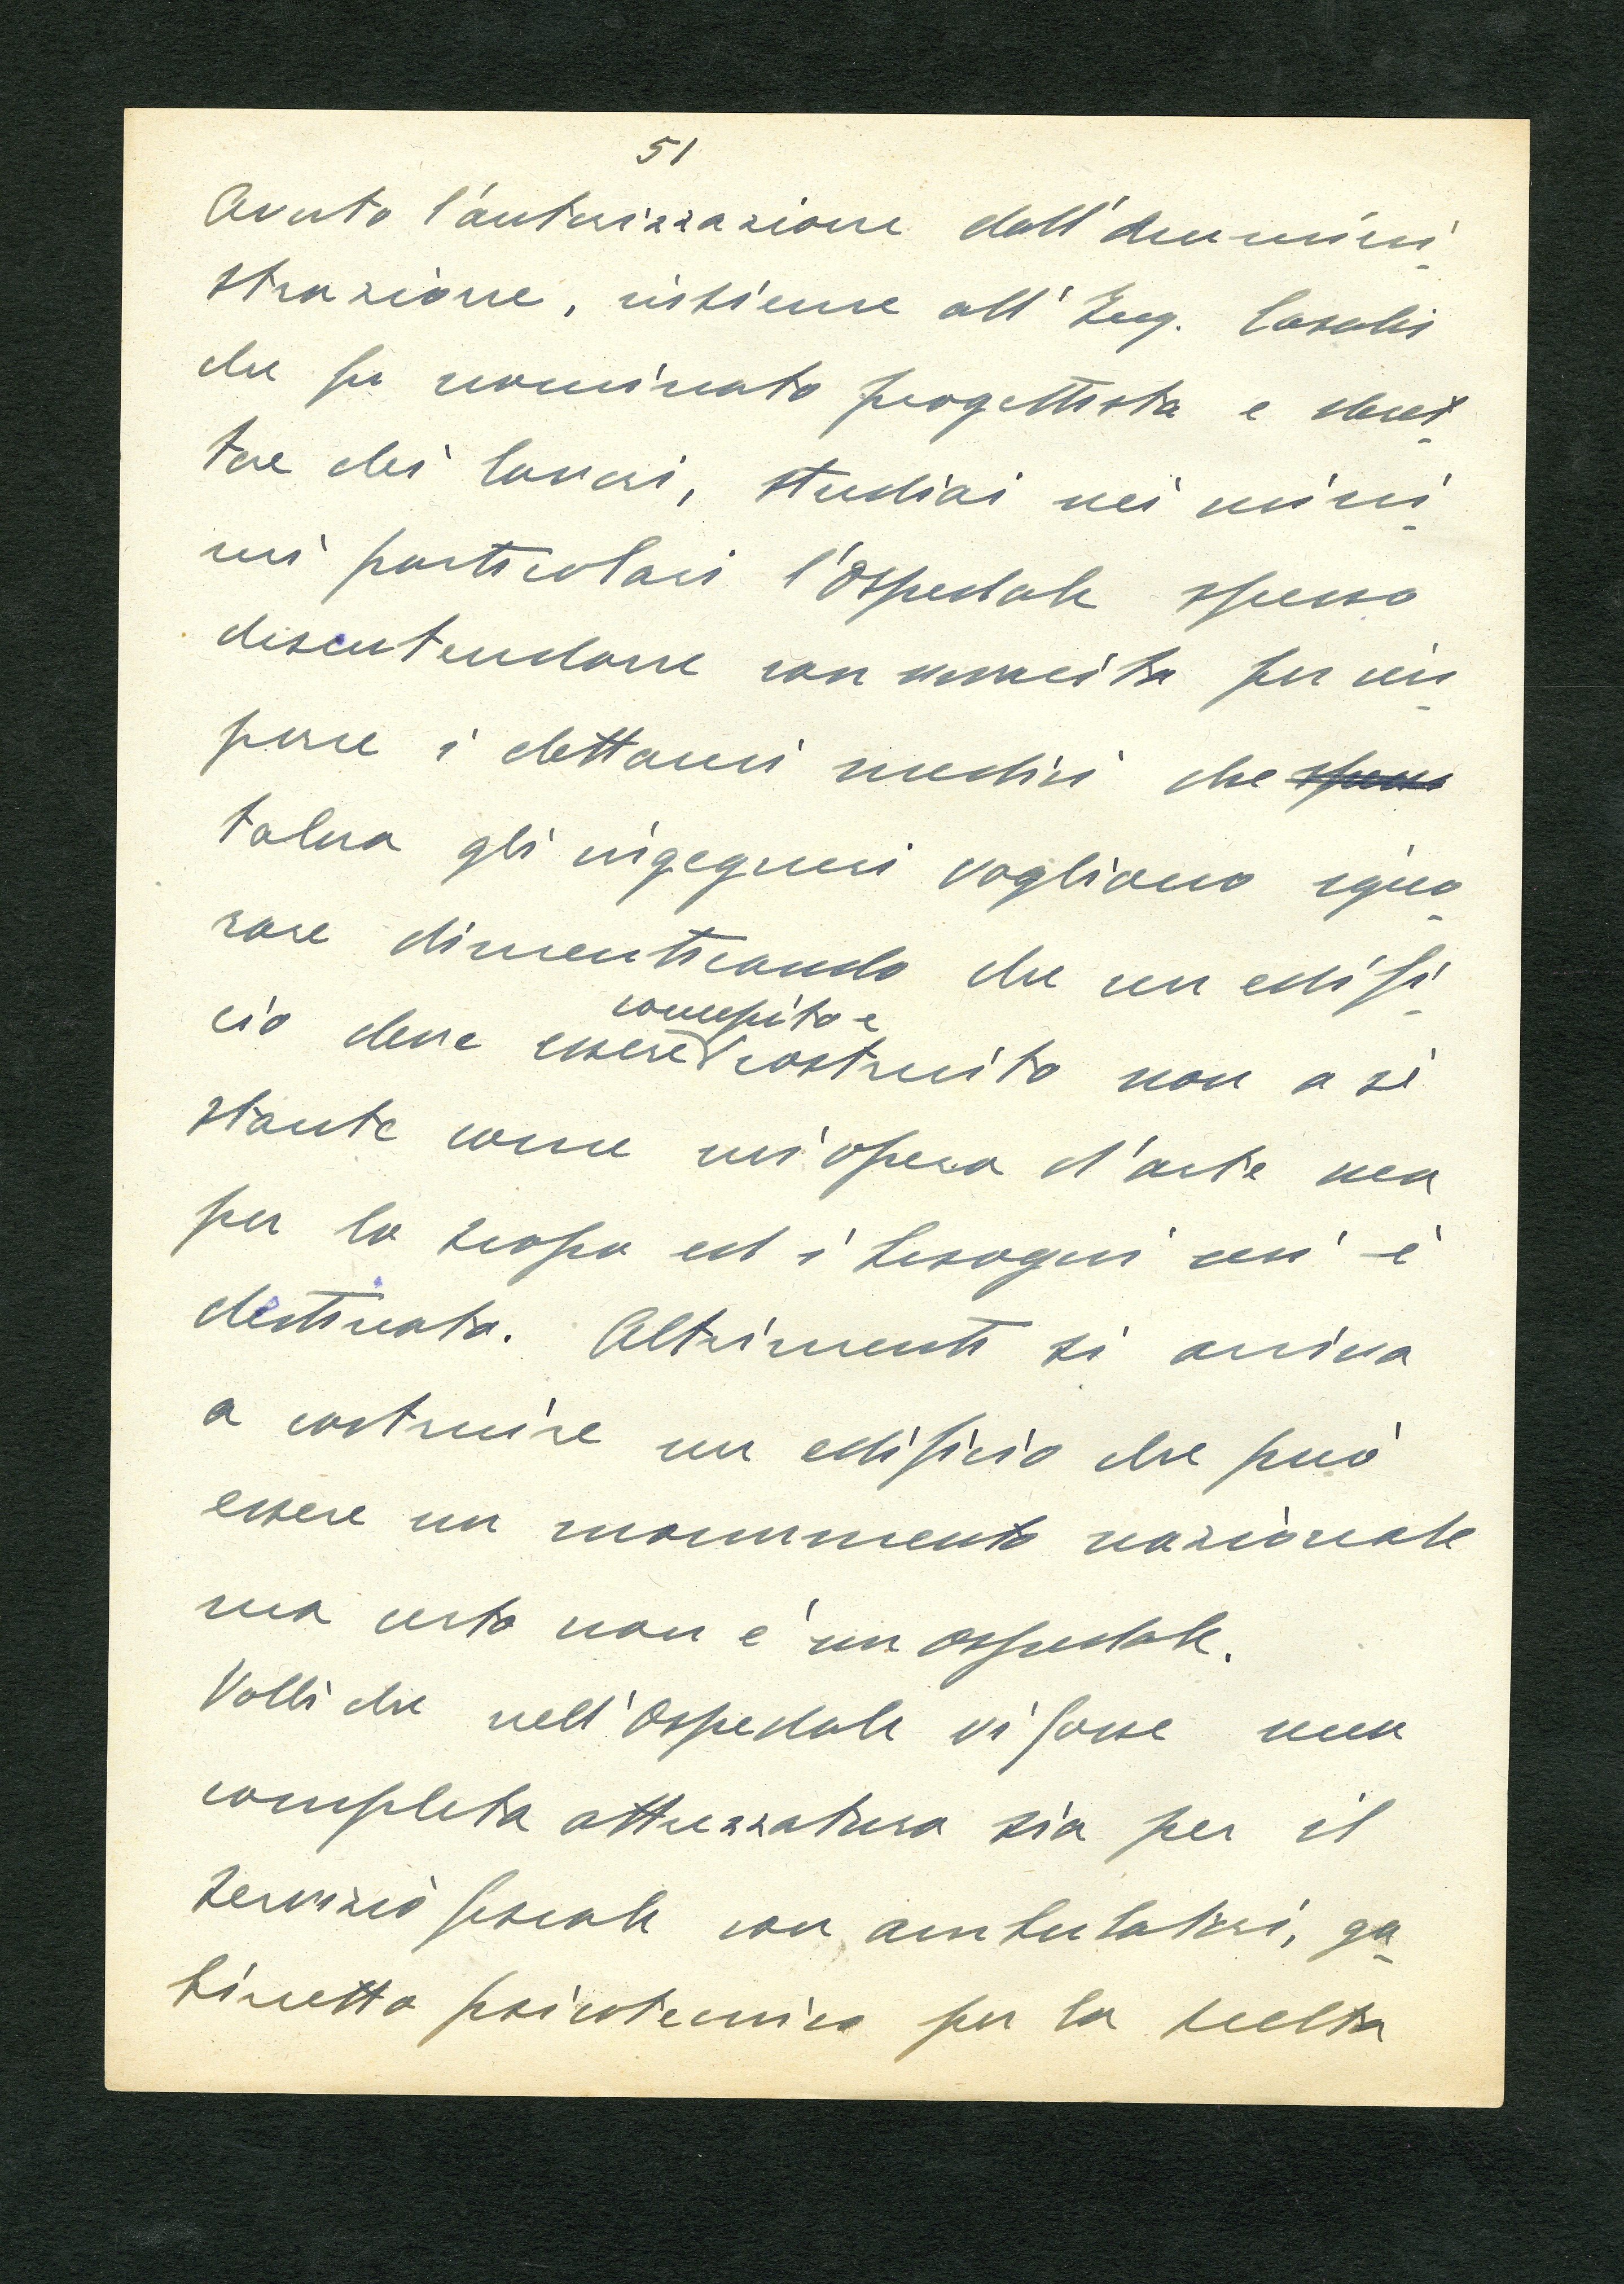 51
Avuto l'autorizzazione dall'Ammini-
strazione, insieme all'Ing. Casalis
che fu nominato progettista e diret-
tore dei lavori, studiai nei mini-
mi particolari l'Ospedale spesso
discutendone con vivacità per im-
porre i dettami medici che spesso
talora gli ingegneri vogliono igno-
rare dimenticando che un edifi-
concepito e
cio deve essere costruito non a sé
stante come un'opera d'arte ma
per lo scopo ed i bisogni cui è
destinato. Altrimenti si arriva
a costruire un edificio che può
essere un monumento nazionale
ma certo non è un ospedale.
Volli che nell'Ospedale vi fosse una
completa attrezzatura sia per il
servizio fiscale con ambulatori, ga-
binetto psicotecnico per la scelta